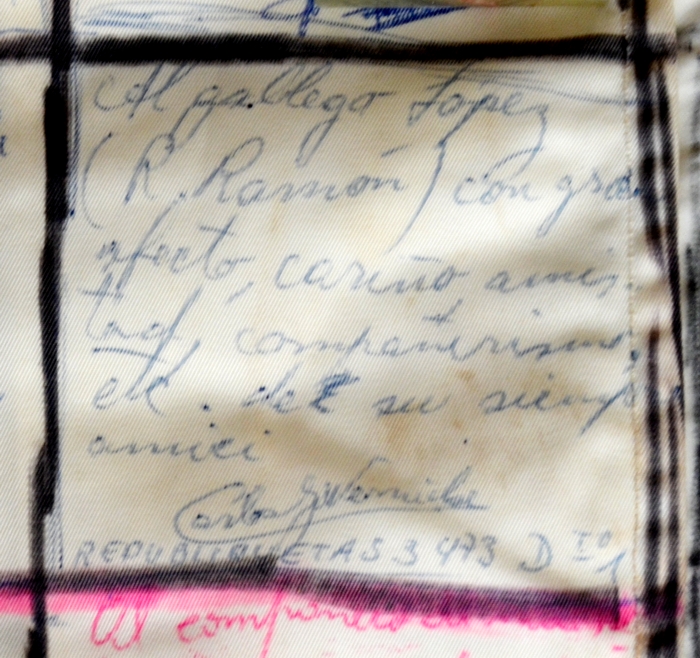 Al gallego López
(R. Ramón) con gran
afecto, cariño amis-
tad, compañerismo,
etc. de su siempre
amici
Carlos
REPUBLIQUETAS 3473 D
Al compañero